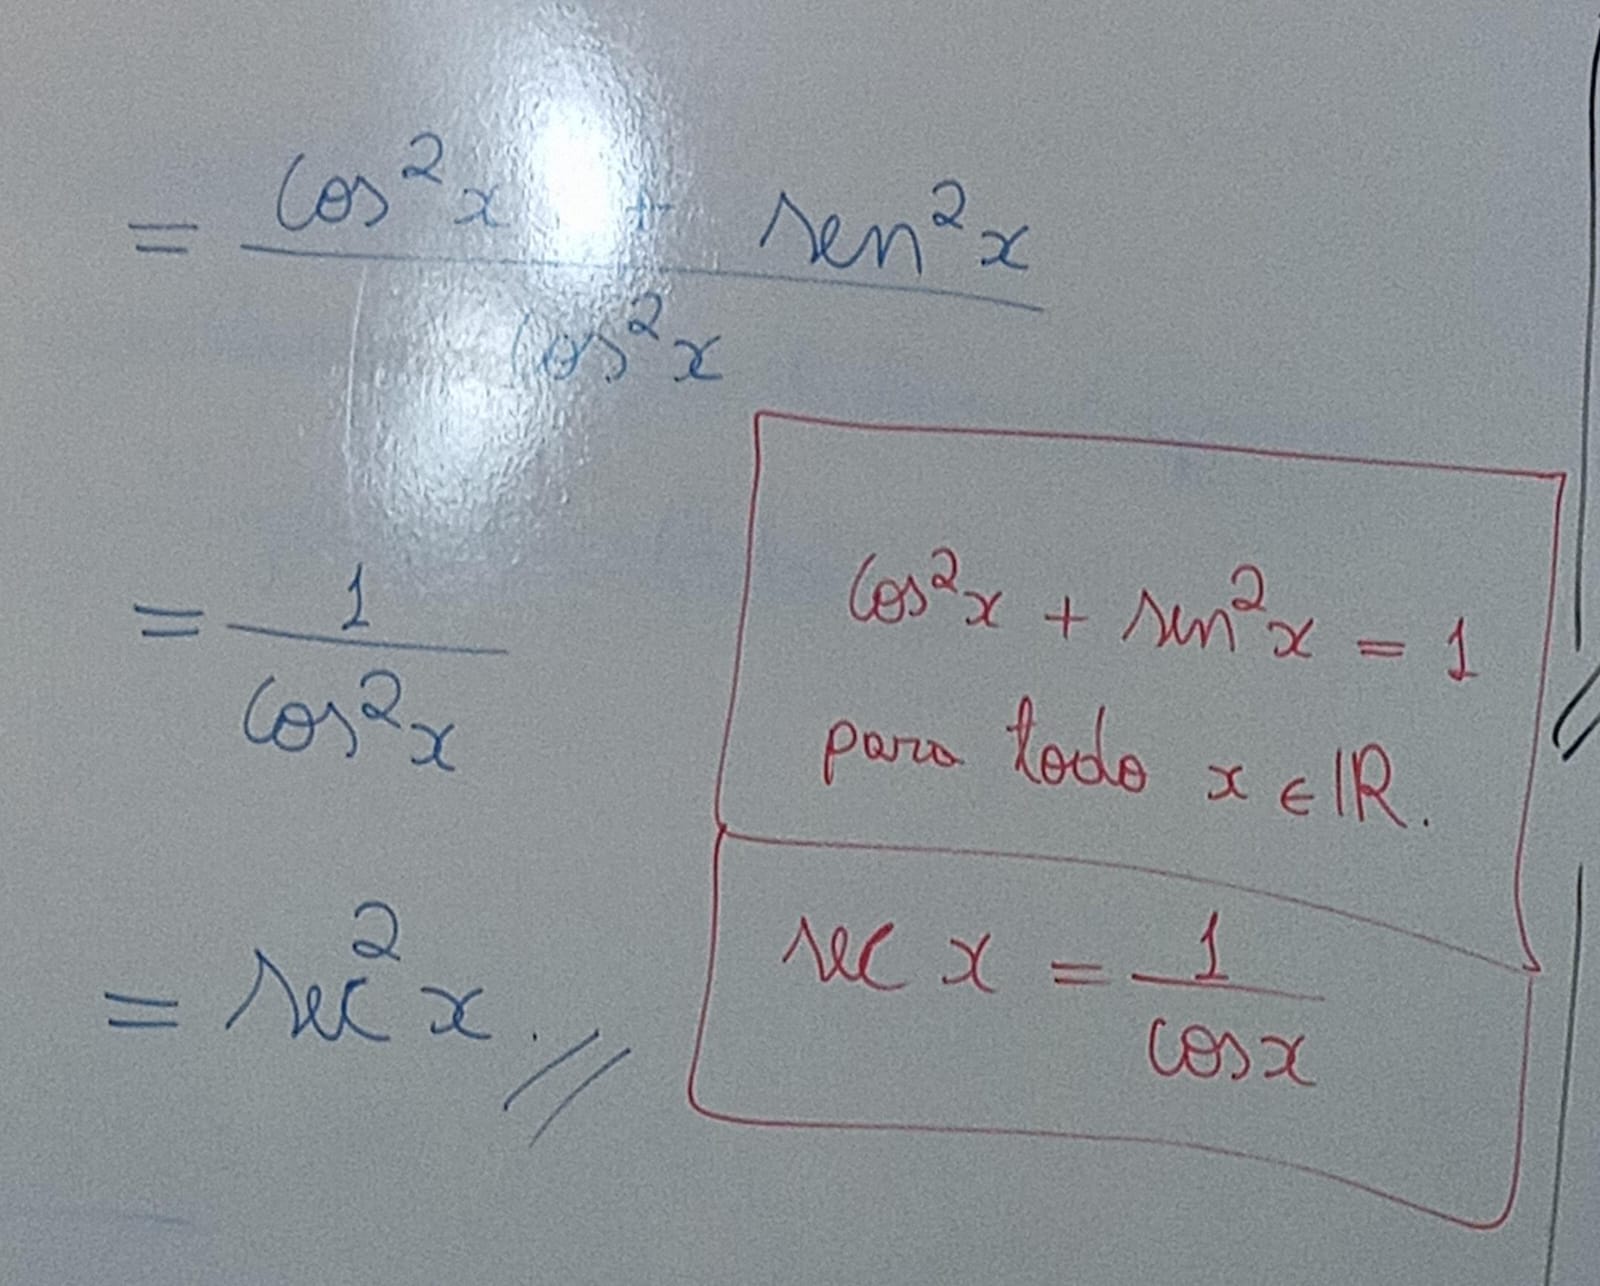 = cos²x + sen²x / cos²x
= 1 / cos²x
= sec²x.
cos²x + sen²x = 1
para todo x ∈ ℝ.
sec x = 1 / cos x